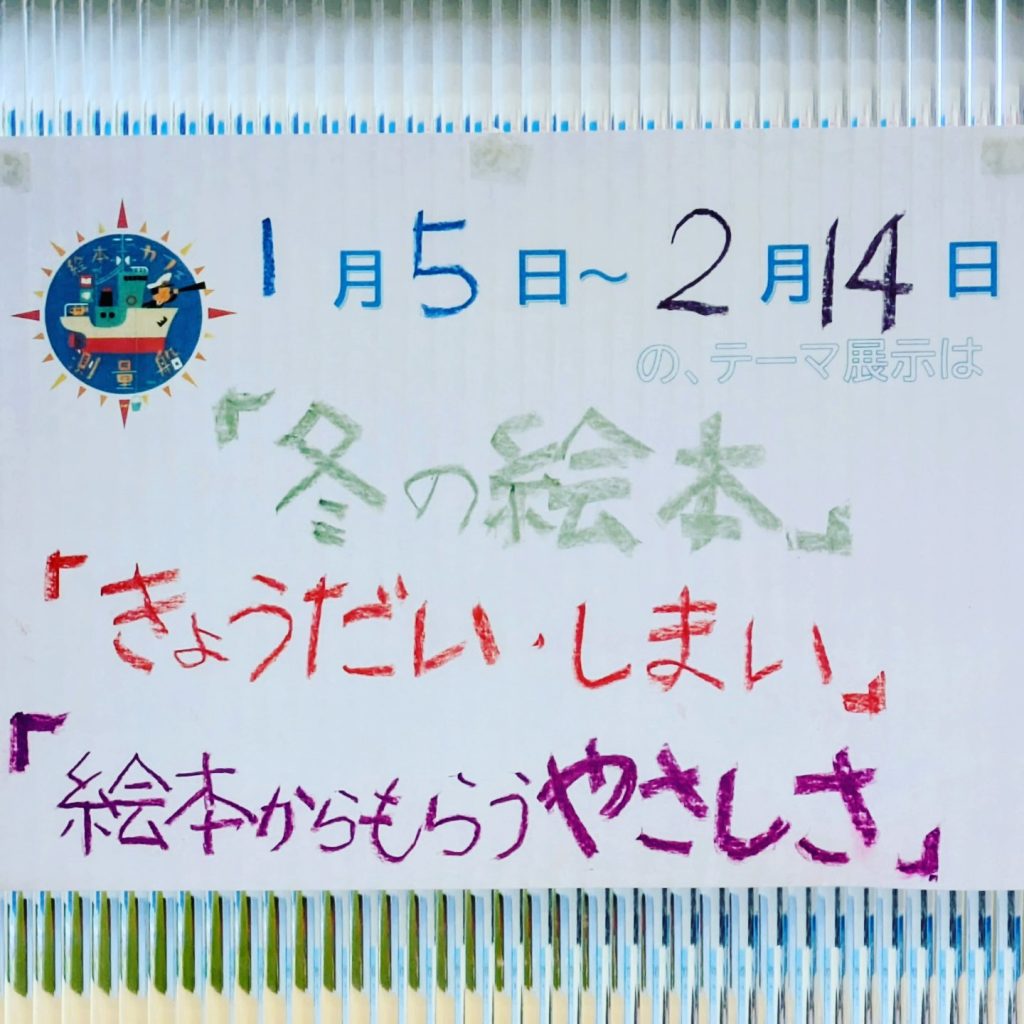 絵本カフェ
1月5日～2月14日
の、テーマ展示は
『冬の絵本』
『きょうだい・しまい』
『絵本からもらうやさしさ』